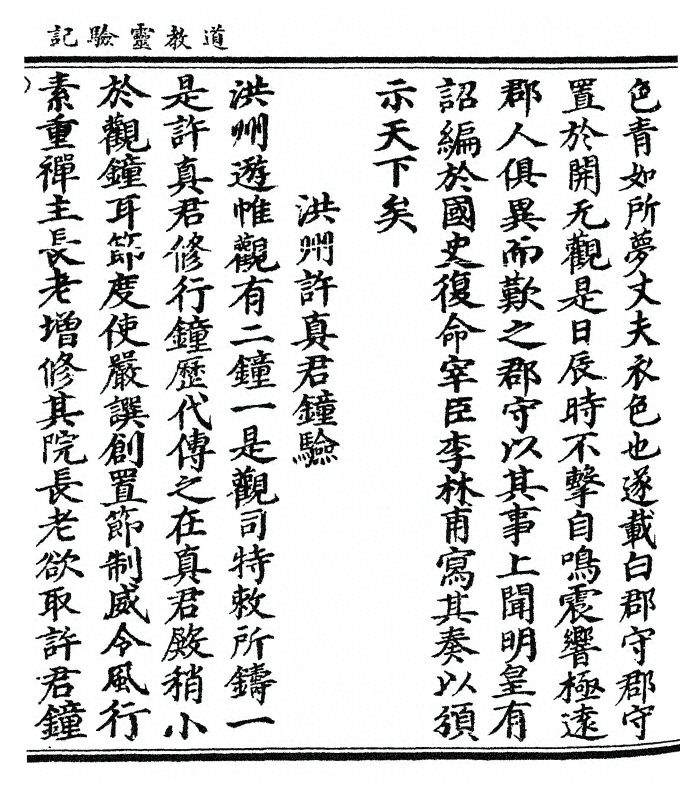 道教靈驗記
色青如所夢丈夫衣色也遂載白郡守郡守
置於開元觀是日辰時不擊自鳴震響極遠
郡人俱異而歎之郡守以其事上聞明皇有
詔編於國史復命宰臣李林甫寫其奏以頒
示天下矣
洪州許真君鐘驗
洪州遊帷觀有二鐘一是觀司特敕所鑄一
是許真君修行鐘歷代傳之在真君殿稍小
於觀鐘耳節度使嚴譔創置節制威令風行
素重禪主長老增修其院長老欲取許君鐘